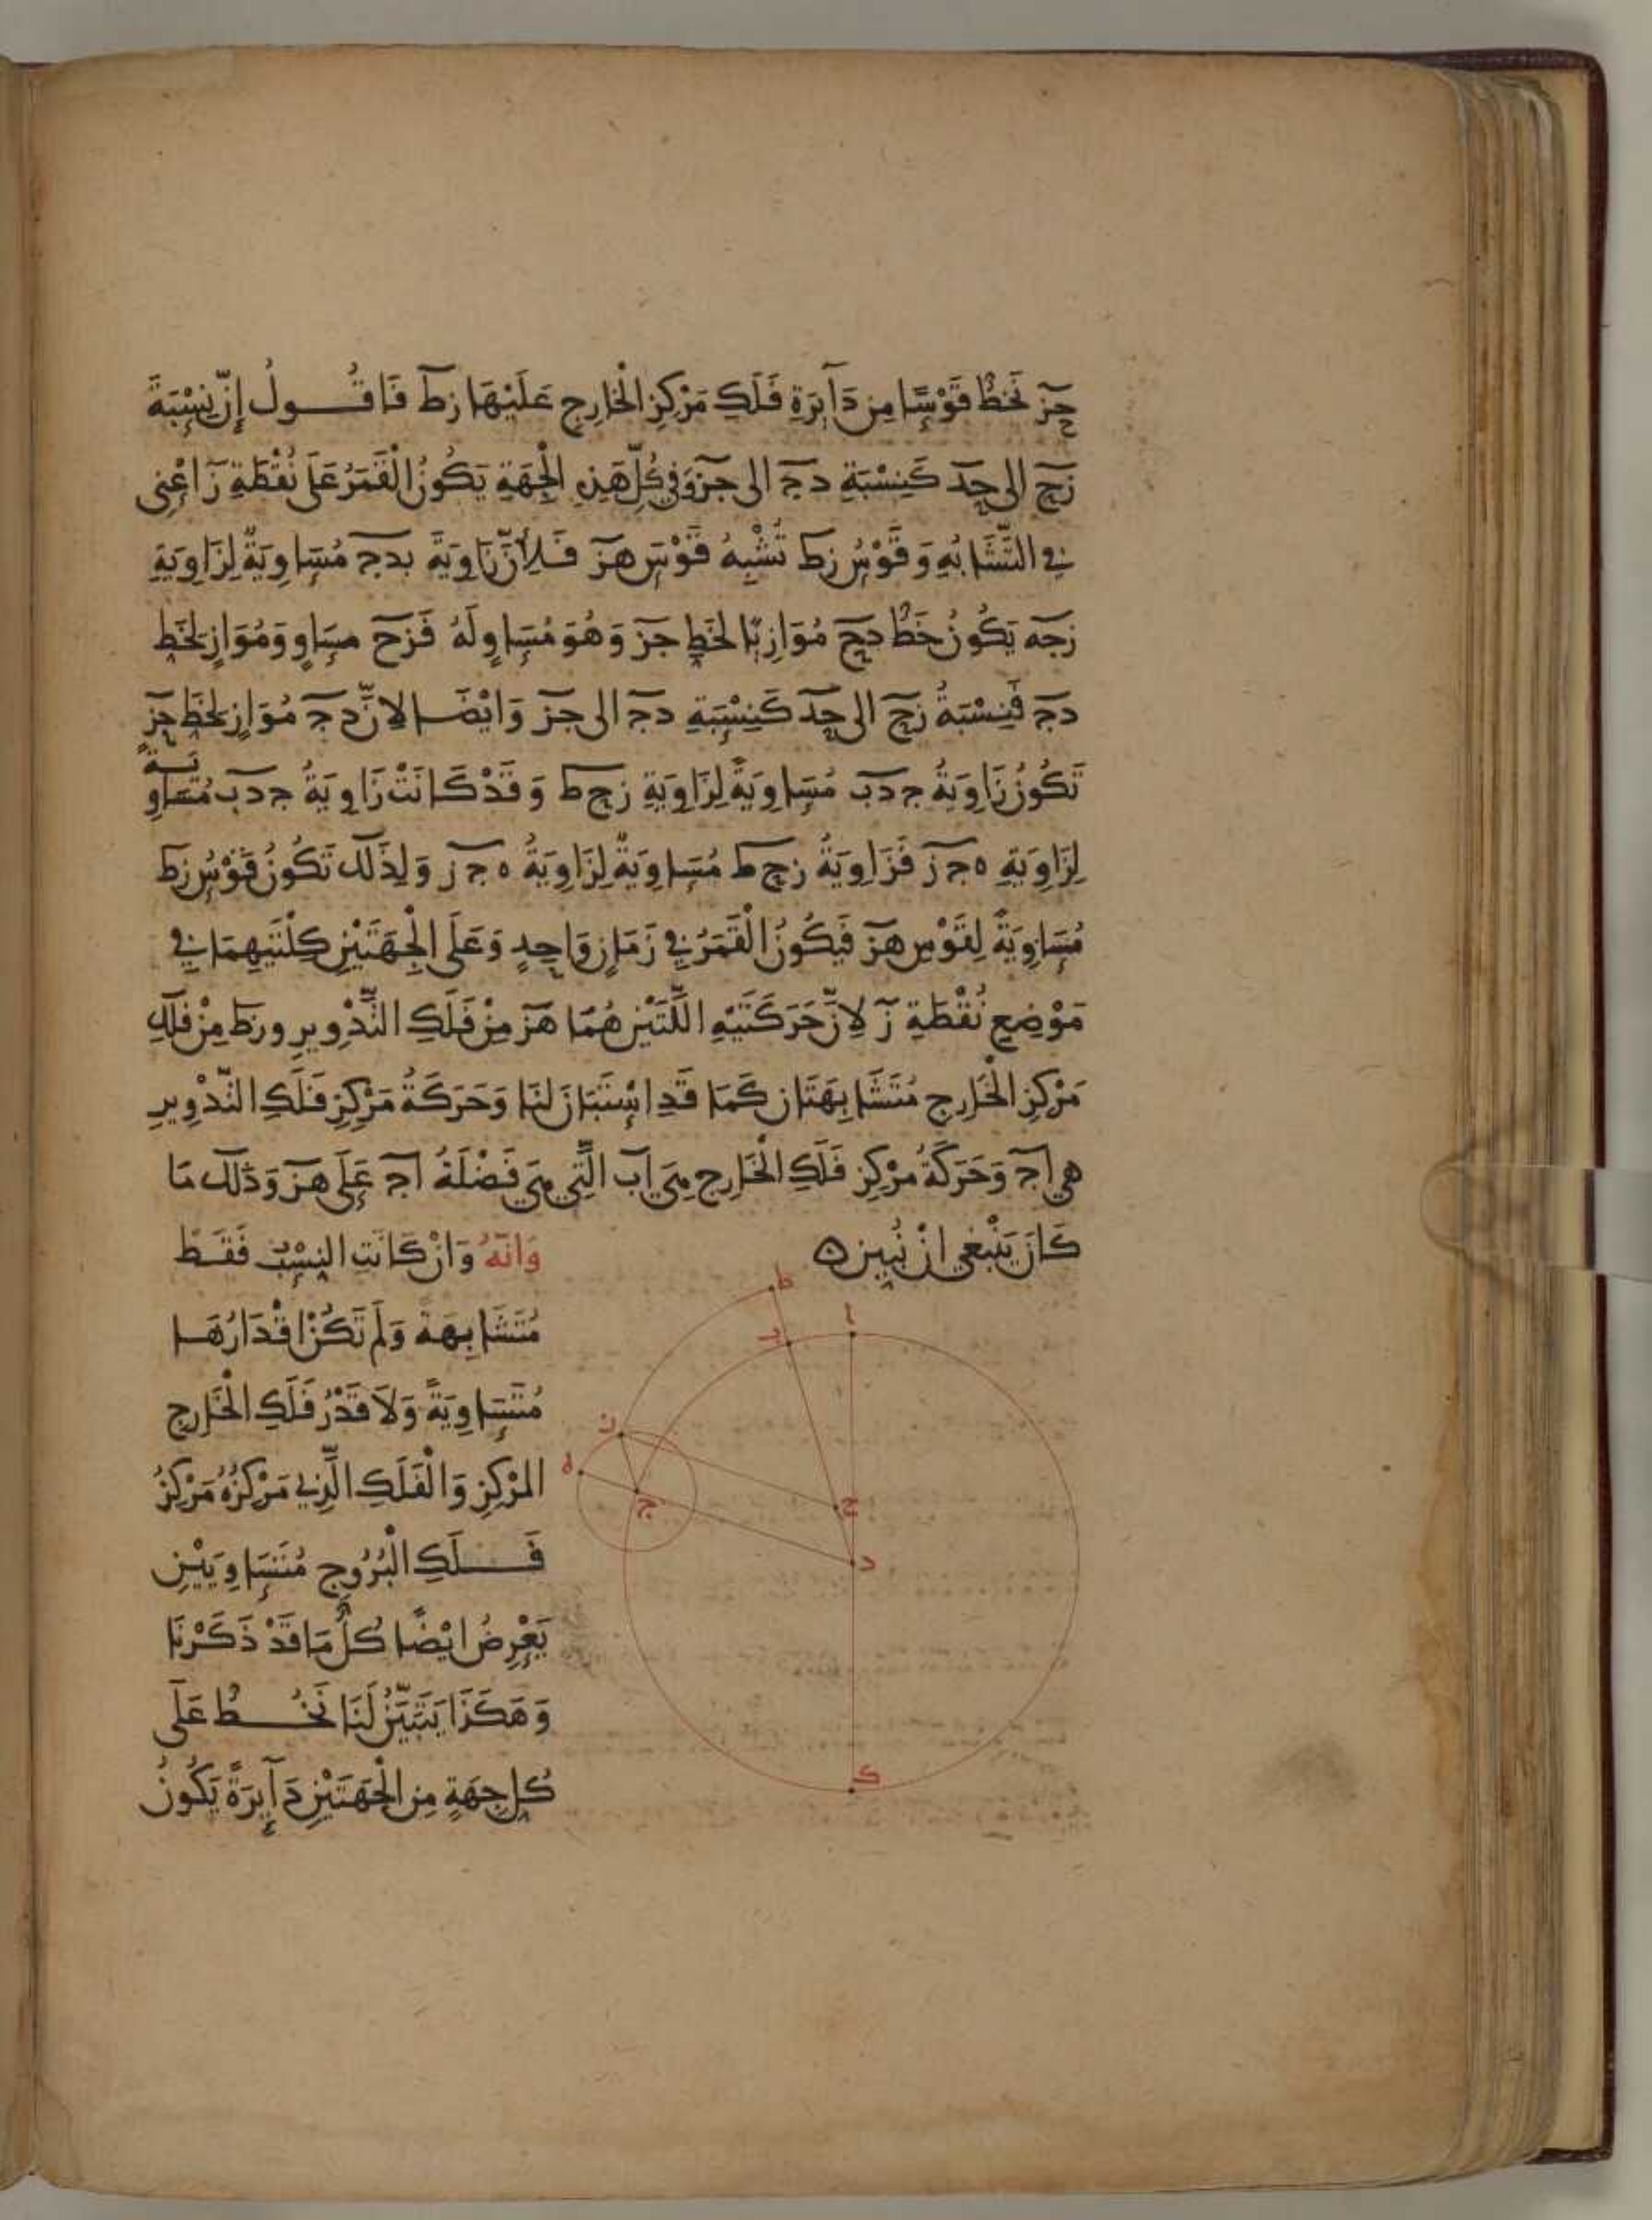 جز نَخُطُّ قَوْسًا مِن دَآيِرَةِ فَلَكِ مَرْكَزِ الْخَارِجِ عَلَيْهَا زط فَاقُولُ إِنَّ نِسْبَةَ
زح الى حد كَنِسْبَةِ دج الى جز وَفِي كُلِّ هَذِهِ الْجِهَةِ يَكُونُ الْقَمَرُ عَلَى نُقْطَةِ ز اعْنِي
فِي التَّشَابُهِ وَقَوْسُ زط تُشْبِهُ قَوْسَ هز فَلِأَنَّ زَاوِيَةَ بدج مُسَاوِيَةٌ لِزَاوِيَةِ
زجه يَكُونُ خَطُّ دح مُوَازِيًا لِخَطِ جز وَهُوَ مُسَاوٍ لَهُ فَزح مسَاوٍ وَمُوَازٍ لِخَطِ
دج فَنِسْبَةُ زح الى حد كَنِسْبَةِ دج الى جز وَايْضًا لِانَّ دج مُوَازٍ لِخَطِ حز
تَكُونُ زَاوِيَةُ جدب مُسَاوِيَةً لِزَاوِيَةِ زحط وَقَدْ كَانَتْ زَاوِيَةُ جدب مُسَاوِيَةً
لِزَاوِيَةِ هجز فَزَاوِيَةُ زحط مُسَاوِيَةٌ لِزَاوِيَةُ هجز وَلِذَلِكَ تَكُونُ قَوْسُ زط
مُسَاوِيَةً لِقَوْسِ هز فَيَكُونُ الْقَمَرُ فِي زَمَانٍ وَاحِدٍ وَعَلَى الْجِهَتَيْنِ كِلْتَيهِمَا فِي
مَوْضِعِ نُقْطَةِ ز لِانَّ حَرَكَتَيْهِ اللَّتَيْنِ هُمَا هز مِنْ فَلَكِ التَّدْوِيرِ وزط مِنْ فَلَكِ
مَرْكَزِ الْخَارِجِ مُتَشَابِهَتَانِ كَمَا قَدِ اسْتَبَانَ لَنَا وَحَرَكَةُ مَرْكَزِ فَلَكِ التَّدْوِيرِ
هي اج وَحَرَكَةُ مَرْكَزِ فَلَكِ الْخَارِجِ هِيَ اب الَّتِي هِيَ فَضْلَةُ اج عَلَى هز وَذَلِكَ مَا
كَانَ يَنْبَغِي انْ نُبَيِّنَ ه
وَانَّهُ وَانْ كَانَتِ النِسَبُ فَقَطْ
مُتَشَابِهَةً وَلَمْ تَكُنْ اقْدَارُهَا
مُتَسَاوِيَةً وَلَا قَدْرُ فَلَكِ الْخَارِجِ
المَرْكَزِ وَالْفَلَكِ الَّذِي مَرْكَزُهُ مَرْكَزُ
فَلَكِ الْبُرُوجِ مُتَسَاوِيَيْنِ
يَعْرِضُ ايْضًا كُلُّ مَا قَدْ ذَكَرْنَا
وَهَكَذَا يَتَبَيَّنُ لَنَا نَخُطُّ عَلَى
كُلِ جِهَةٍ مِنَ الْجِهَتَيْنِ دَآيِرَةً يَكُونُ
ط
ب
ا
ز
ه
ج
ح
د
ك